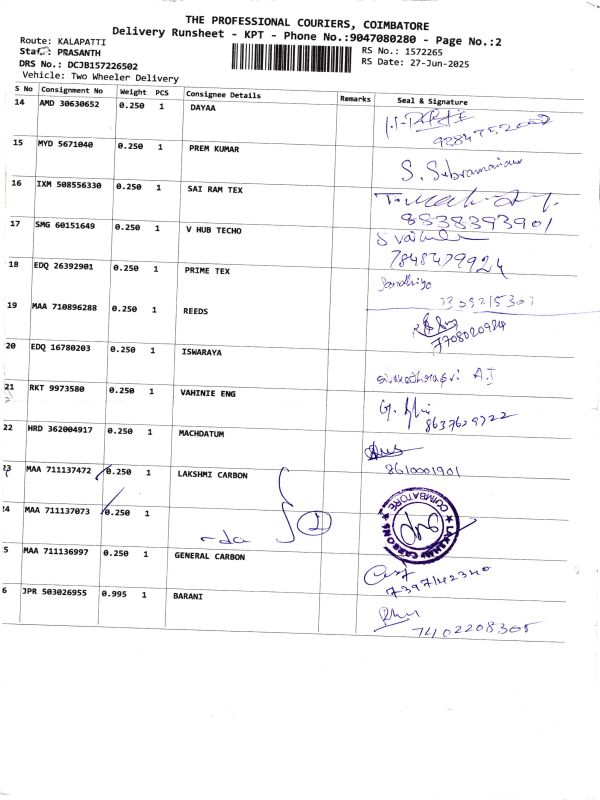 THE PROFESSIONAL COURIERS, COIMBATORE
Delivery Runsheet - KPT - Phone No.:9047080280 - Page No.:2
Route: KALAPATTI
RS No.: 1572265
Staff: PRASANTH
RS Date: 27-Jun-2025
DRS No.: DCJB157226502
Vehicle: Two Wheeler Delivery
S No Consignment No Weight PCS Consignee Details Remarks Seal & Signature
14 AMD 30630652 0.250 1 DAYAA
15 MYD 5671040 0.250 1 PREM KUMAR
S. Subramaniam
16 IXM 508556330 0.250 1 SAI RAM TEX
8838393901
17 SMG 60151649 0.250 1 V HUB TECHO
7848479924
18 EDQ 26392901 0.250 1 PRIME TEX
Sandhiya
19 MAA 710896288 0.250 1 REEDS
7708020984
20 EDQ 16780203 0.250 1 ISWARAYA
A.I
21 RKT 9973580 0.250 1 VAHINIE ENG
8637629222
22 HRD 362004917 0.250 1 MACHDATUM
8610001901
23 MAA 711137472 0.250 1 LAKSHMI CARBON
24 MAA 711137073 0.250 1
2
LAKSHMI CARBONS COIMBATORE
-do
5 MAA 711136997 0.250 1 GENERAL CARBON
7397142340
6 JPR 503026955 0.995 1 BARANI
7402208305